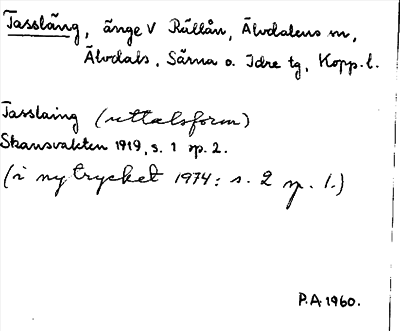 Tassläng, änge V Rullån, Älvdalens sn,
Älvdals, Särna o. Idre tg, Kopp. l.
Tasslaing (uttalsform)
Skansvakten 1919, s. 1 sp. 2.
(i nytrycket 1974: s. 2 sp. 1.)
P.A. 1960.